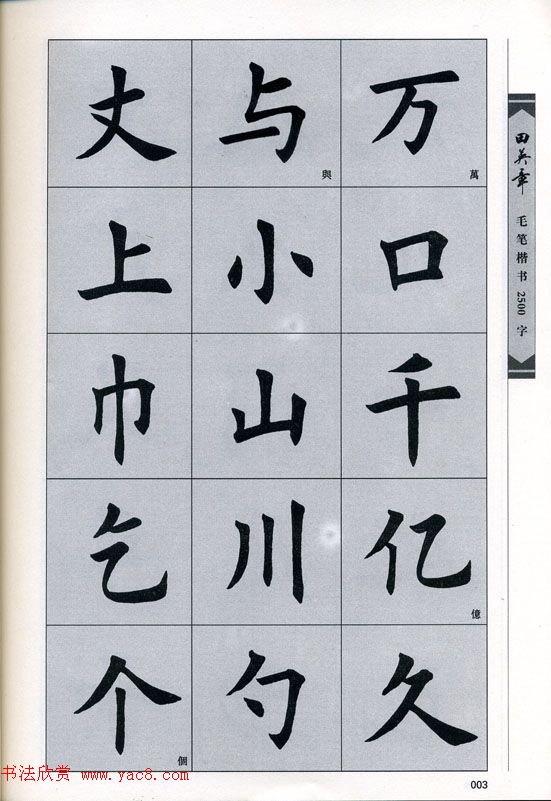 丈 与 万
與 萬
上 小 口
巾 山 千
乞 川 亿
億
个 勺 久
個
田英章
毛笔楷书2500字
书法欣赏 www.yac8.com
003